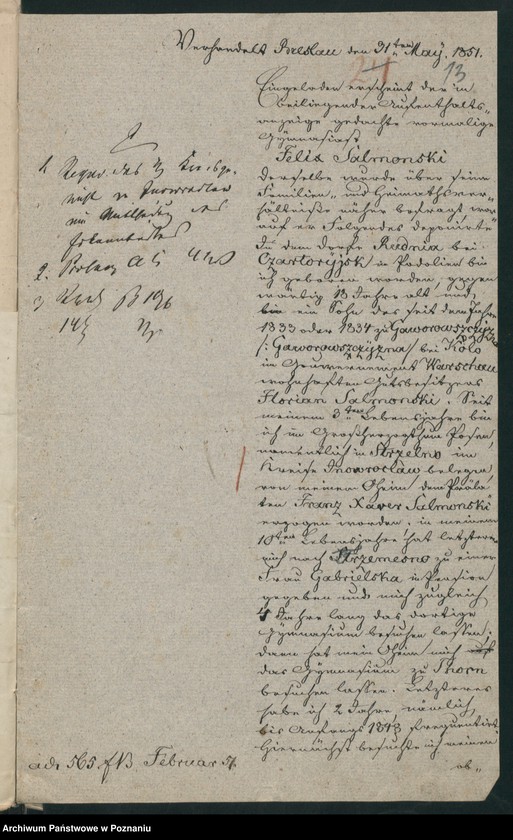 Verhandelt Breslau den 31ten May. 1851.
24
13
Eingeladen erscheint der in
beiliegender Aufenthalts-
anzeige gedachte vormalige
Gymnasiast
Felix Salmonski
Derselbe wurde über seine
Familien- und Heimathsver-
hältniße näher befragt, wor-
auf er Folgendes deponirte:
In dem Dorfe Rudnia bei
Czartoryjsk in Podolien bin
ich geboren worden, gegen-
wärtig 18 Jahre alt und
bin ein Sohn des seit dem Jahre
1833 oder 1834 zu Gaworowszczyzna
/: Gaworowszczyzna / bei Koło
im Gouvernement Warschau
wohnhaften Gutsbesitzers
Florian Salmonski. Seit
meinem 3ten Lebensjahre bin
ich im Großherzogthum Posen,
namentlich in Strzelno im
Kreise Inowroclaw belegen,
von meinem Oheim dem Präla-
ten Franz Xaver Salmonski
erzogen worden; in meinem
10ten Lebensjahre hat letzterer
mich nach Trzemesno zu einer
Frau Gabrielska in Pension
gegeben und mich zugleich
4 Jahre lang das dortige
Gymnasium besuchen lassen;
dann hat mein Oheim mich
das Gymnasium zu Thorn
besuchen lassen. Letzteres
habe ich 2 Jahre, nämlich
bis Anfangs 1848 frequentirt.
Hiernächst besuchte ich meinen
ob-
1.
2.
3)
ad 565 f B. Februar 51.
Archiwum Państwowe w Poznaniu